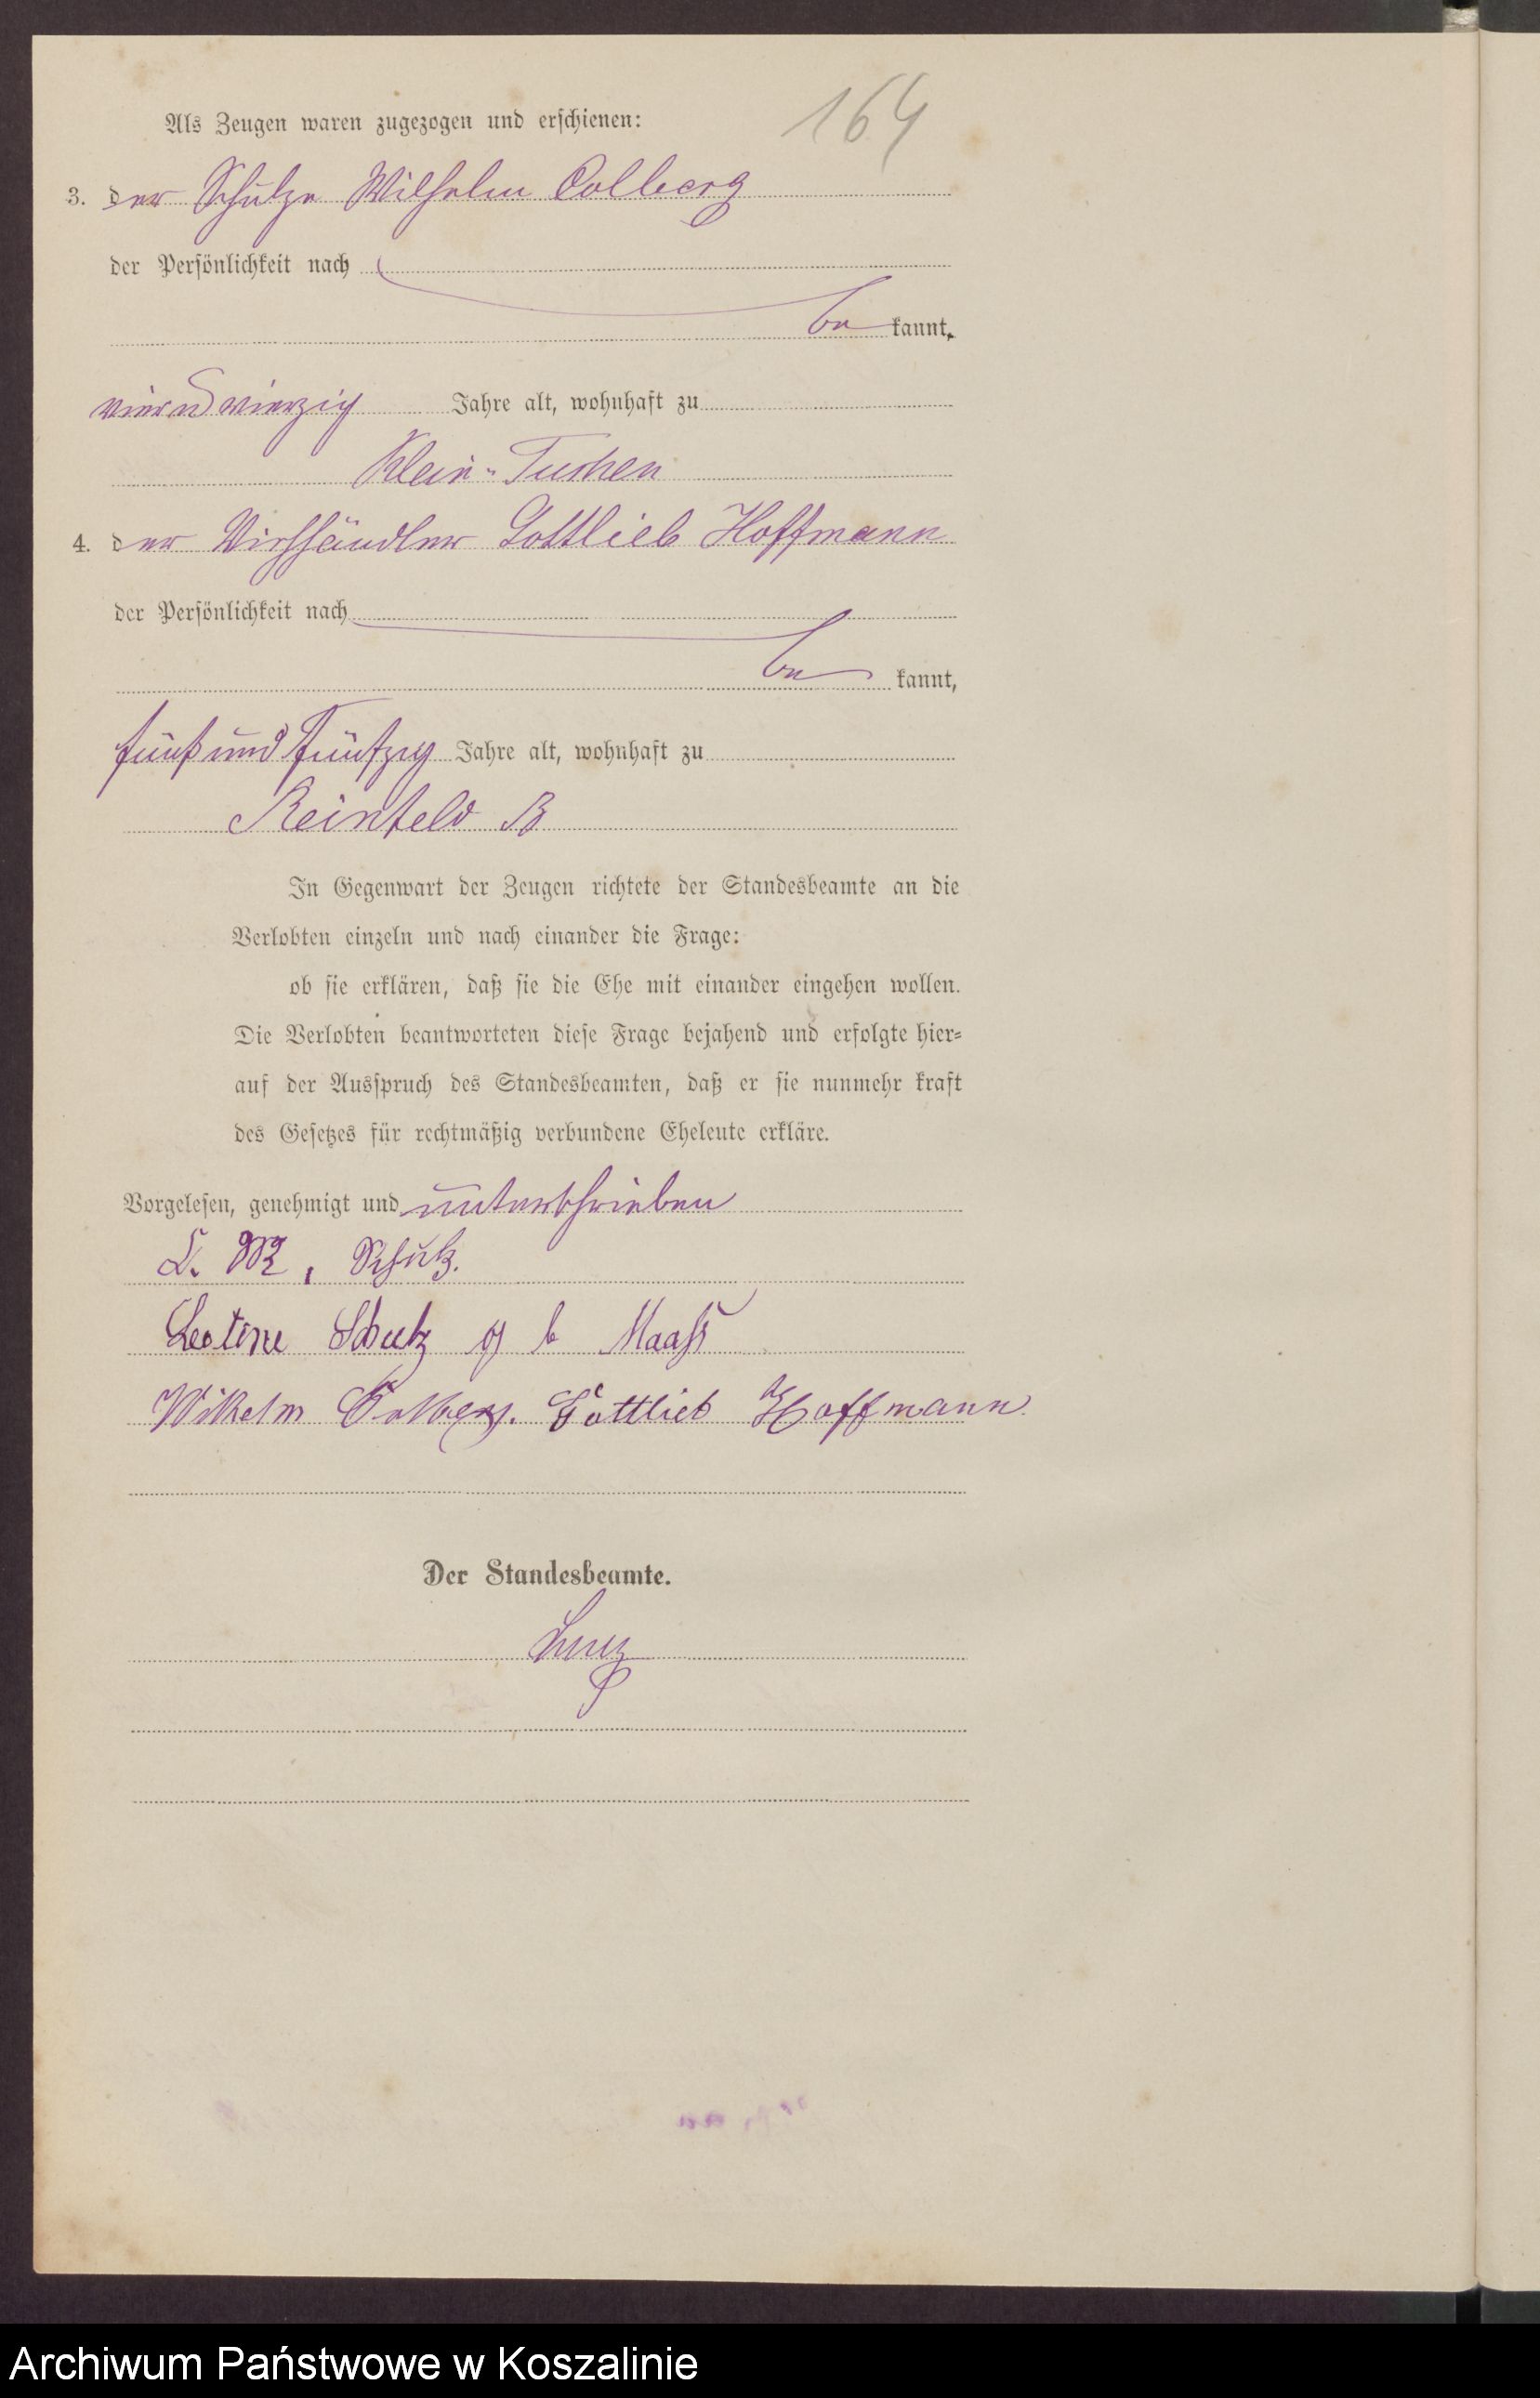 164
Als Zeugen waren zugezogen und erschienen:
3. der Schulze Wilhelm Colberg
der Persönlichkeit nach
be kannt,
vierundvierzig Jahre alt, wohnhaft zu
Klein-Tuchen
4. der Viehhändler Gottlieb Hoffmann
der Persönlichkeit nach
be kannt,
fünf und fünfzig Jahre alt, wohnhaft zu
Reinfeld B
In Gegenwart der Zeugen richtete der Standesbeamte an die
Verlobten einzeln und nach einander die Frage:
ob sie erklären, daß sie die Ehe mit einander eingehen wollen.
Die Verlobten beantworteten diese Frage bejahend und erfolgte hier=
auf der Ausspruch des Standesbeamten, daß er sie nunmehr kraft
des Gesetzes für rechtmäßig verbundene Eheleute erkläre.
Vorgelesen, genehmigt und unterschrieben
Schulz.
Leotine Schulz g b Maaß
Wilhelm Colberg. Gottlieb Hoffmann
Der Standesbeamte.
Archiwum Państwowe w Koszalinie